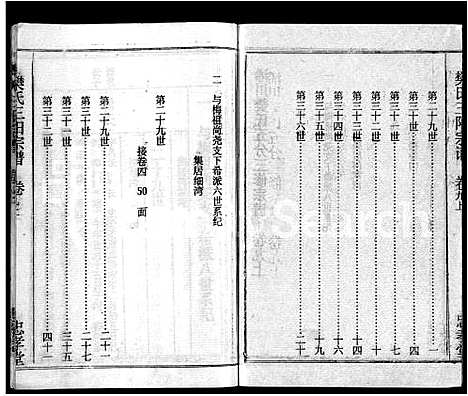 樊氏王阳宗谱 卷九上
第二十九世 一
第三十世 二
第三十一世 四
第三十二世 十
第三十三世 十四
第三十四世 十六
第三十五世 十九
第三十六世 二十
忠孝堂
二 与梅祖尚尧支下希派六世系纪
集居细湾
第二十九世
接卷四 50 面
第二十九世 二十一
第三十世 二十七
第三十一世 三十五
第三十二世 四十
樊氏王阳宗谱 卷
忠孝堂